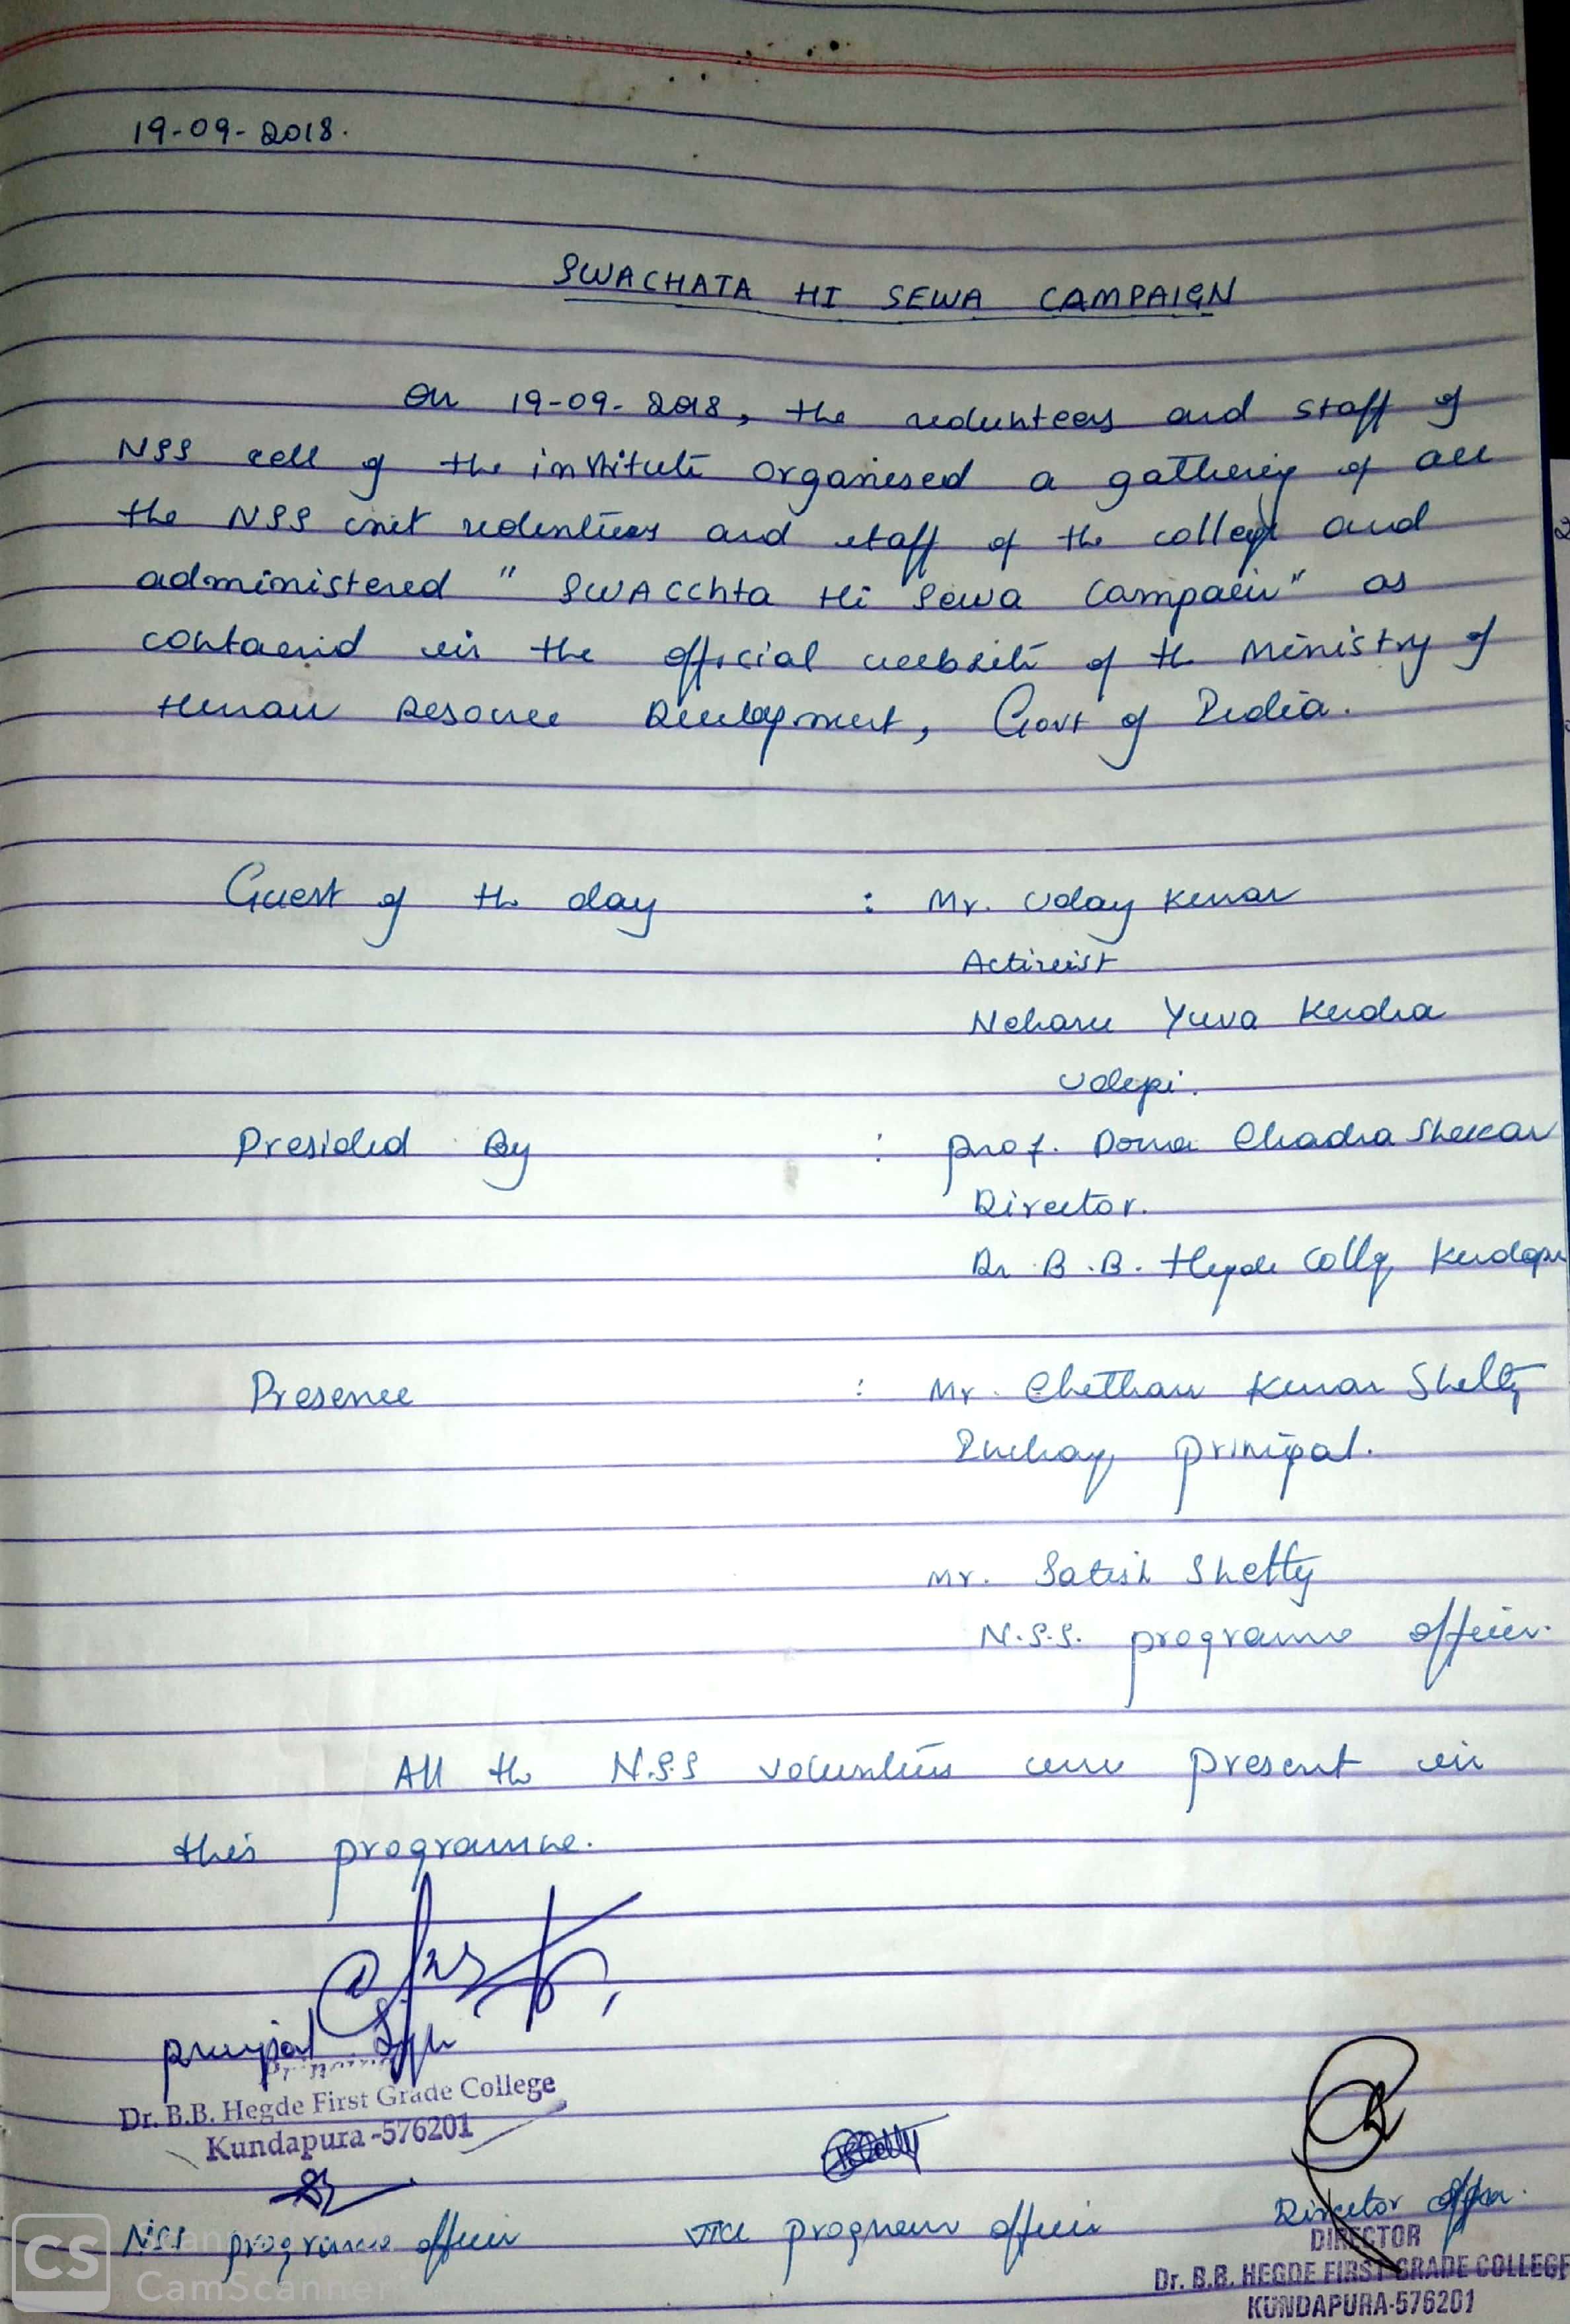 19-09-2018.
SWACHATA HI SEWA CAMPAIGN
On 19-09-2018, the volunteers and staff of
NSS cell of the institute organised a gathering of all
the NSS unit volunteers and staff of the college and
administered " SWACchta Hi Sewa Campaein" as
contained in the official website of the Ministry of
Human Resource Development, Govt of India.
Guest of the day : Mr. Uday Kumar
Activist
Neharu Yuva Kendra
Udupi.
Presided By : prof. Doma Chadra Shekar
Director.
Dr. B.B. Hegde Collg Kundapu
Presence : Mr. Chethan Kumar Shetty
Incharg principal.
Mr. Satish Shetty
N.S.S. programme officer.
All the N.S.S volunteers were present in
this programme.
principal
Principal
Dr. B.B. Hegde First Grade College
Kundapura -576201
NSS programme officer vice program officer Director
DIRECTOR
Dr. B.B. HEGDE FIRST GRADE COLLEGE
KUNDAPURA-576201
CS
Scanned
CamScanner